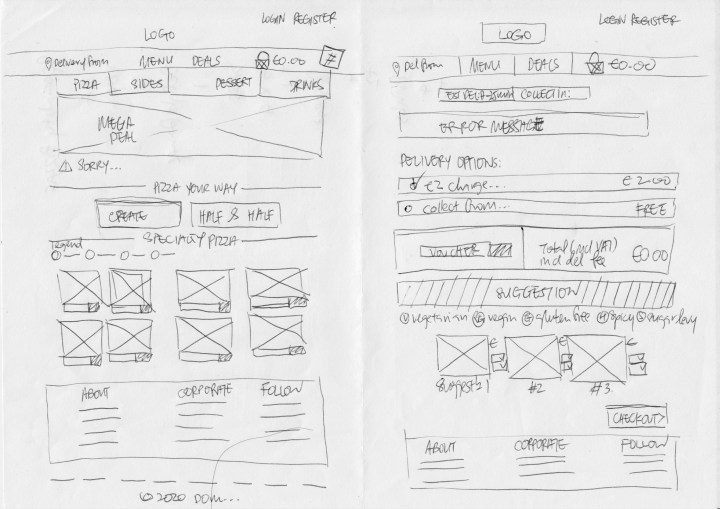 LOGIN REGISTER
LOGO
Delivery from MENU DEALS €0.00 #
PIZZA SIDES DESSERT DRINKS
MEGA
DEAL
SORRY...
PIZZA YOUR WAY
CREATE HALF & HALF
SPECIALTY PIZZA
Legend
ABOUT CORPORATE FOLLOW
© 2020 DOM...
LOGIN REGISTER
LOGO
Del from MENU DEALS €0.00
COLLECT IN:
ERROR MESSAGE
DELIVERY OPTIONS:
€2 charge... €2.00
collect from... FREE
VOUCHER Total (incl VAT)
incl del fee €0.00
SUGGESTION
vegetarian vegan gluten free spicy sugar levy
€ € €
#2 #3
CHECKOUT>
ABOUT CORPORATE FOLLOW